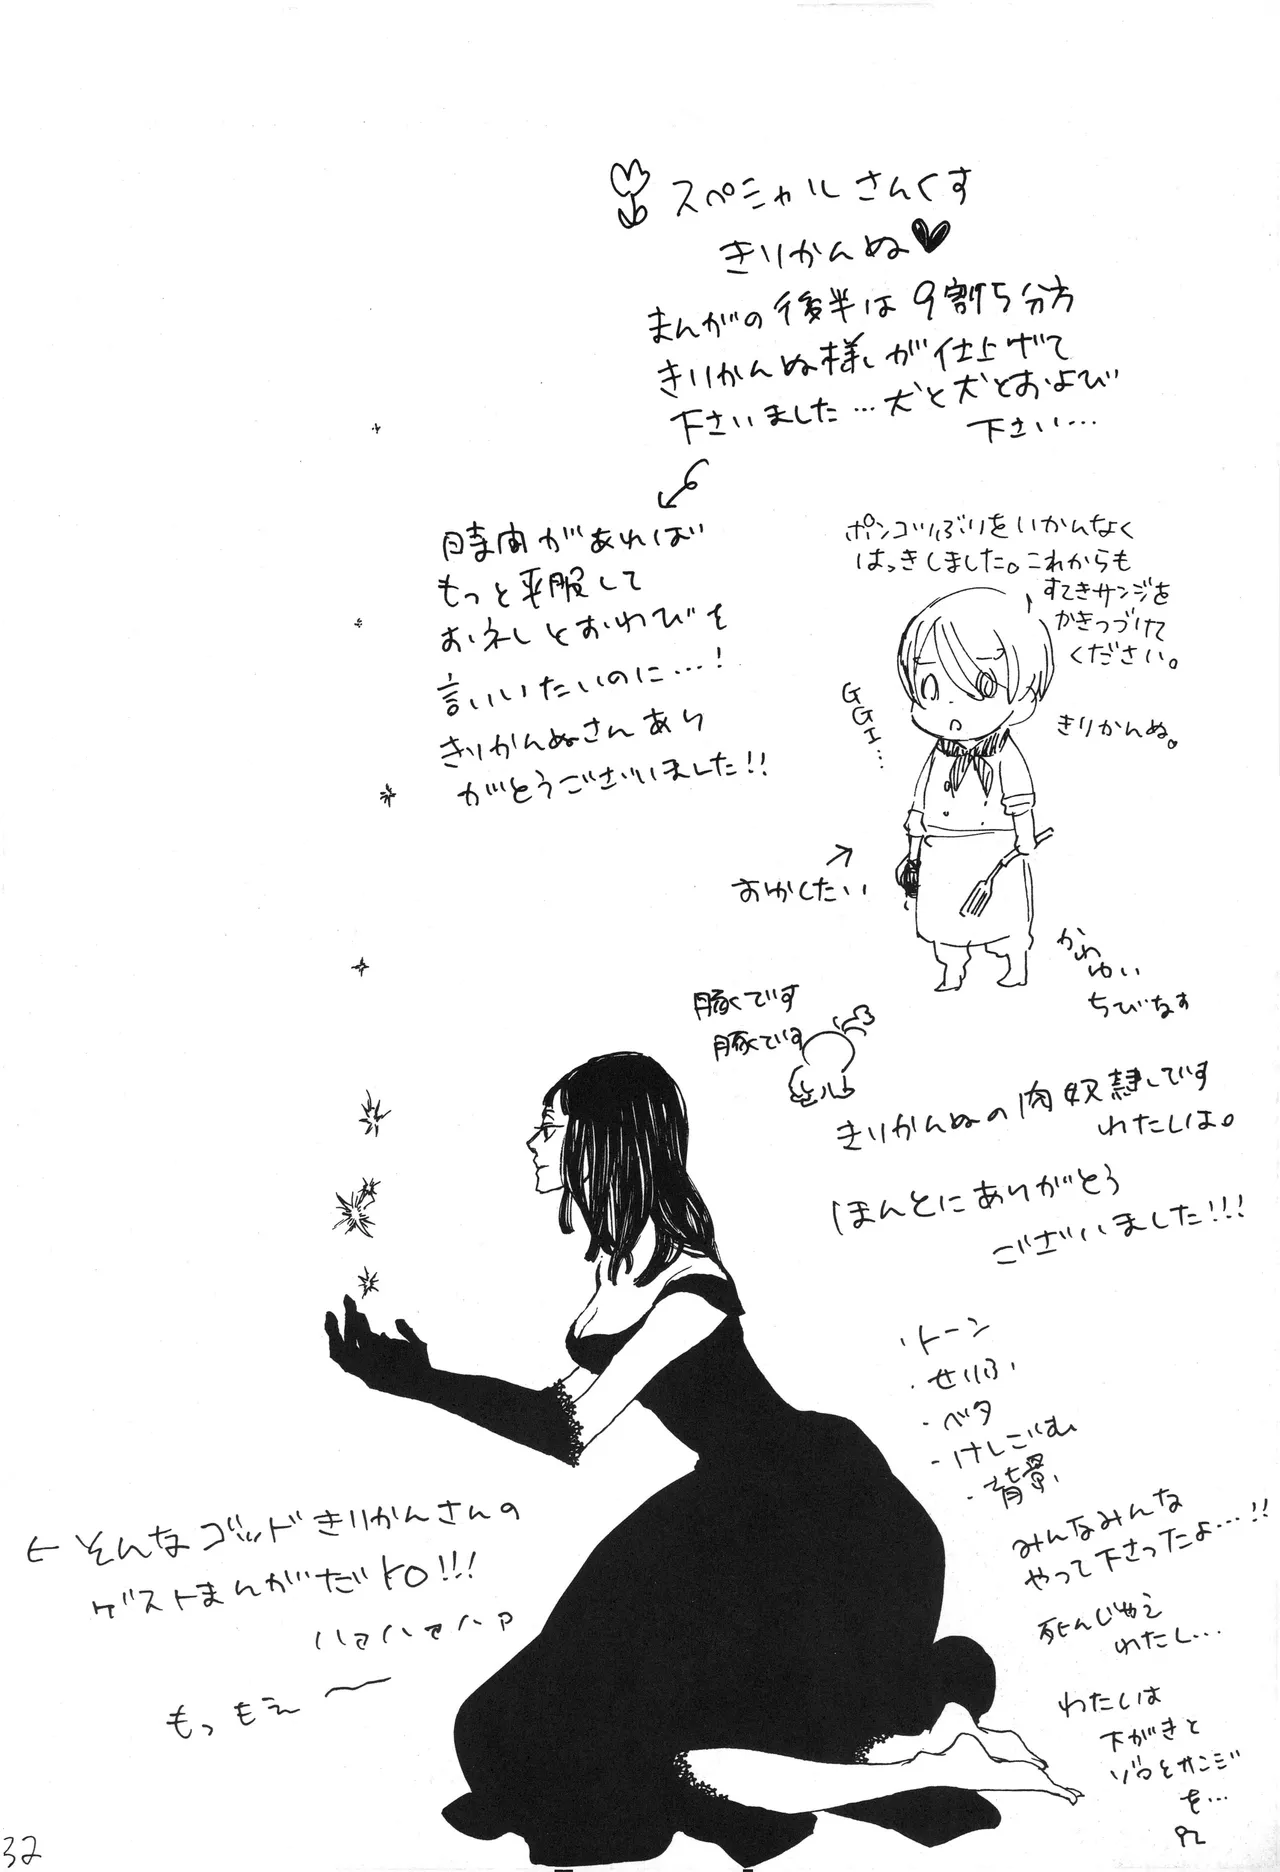 スペシャルさんくす
きりかんぬ♥
まんがの後半は9割5分方
きりかんぬ様しが仕上げて
下さいました…犬と犬とおよび
下さい…
時間があれば
もっと平服して
お礼とおわびを
言いいたいのに…!
きりかんぬさんあり
がとうございました!!
ポンコツぶりをいかんなく
はっきしました。これからも
すてきサンジを
かきつづけて
ください。
きりかんぬ。
GGI…
おかしたい
かわゆい
ちびなす
豚です
豚です
きりかんぬの肉奴隷です
わたしは。
ほんとにありがとう
ございました!!!
・トーン
・せりふ
・ベタ
・けしごむ
・背景
みんなみんな
やって下さったよ…!!
死んじゃえ
わたし…
わたしは
下がきと
ゾロとサンジ
を…
←そんなゴッドきりかんさんの
ゲストまんがだYO!!!
ハァハァハァ
もっもえ〜
32